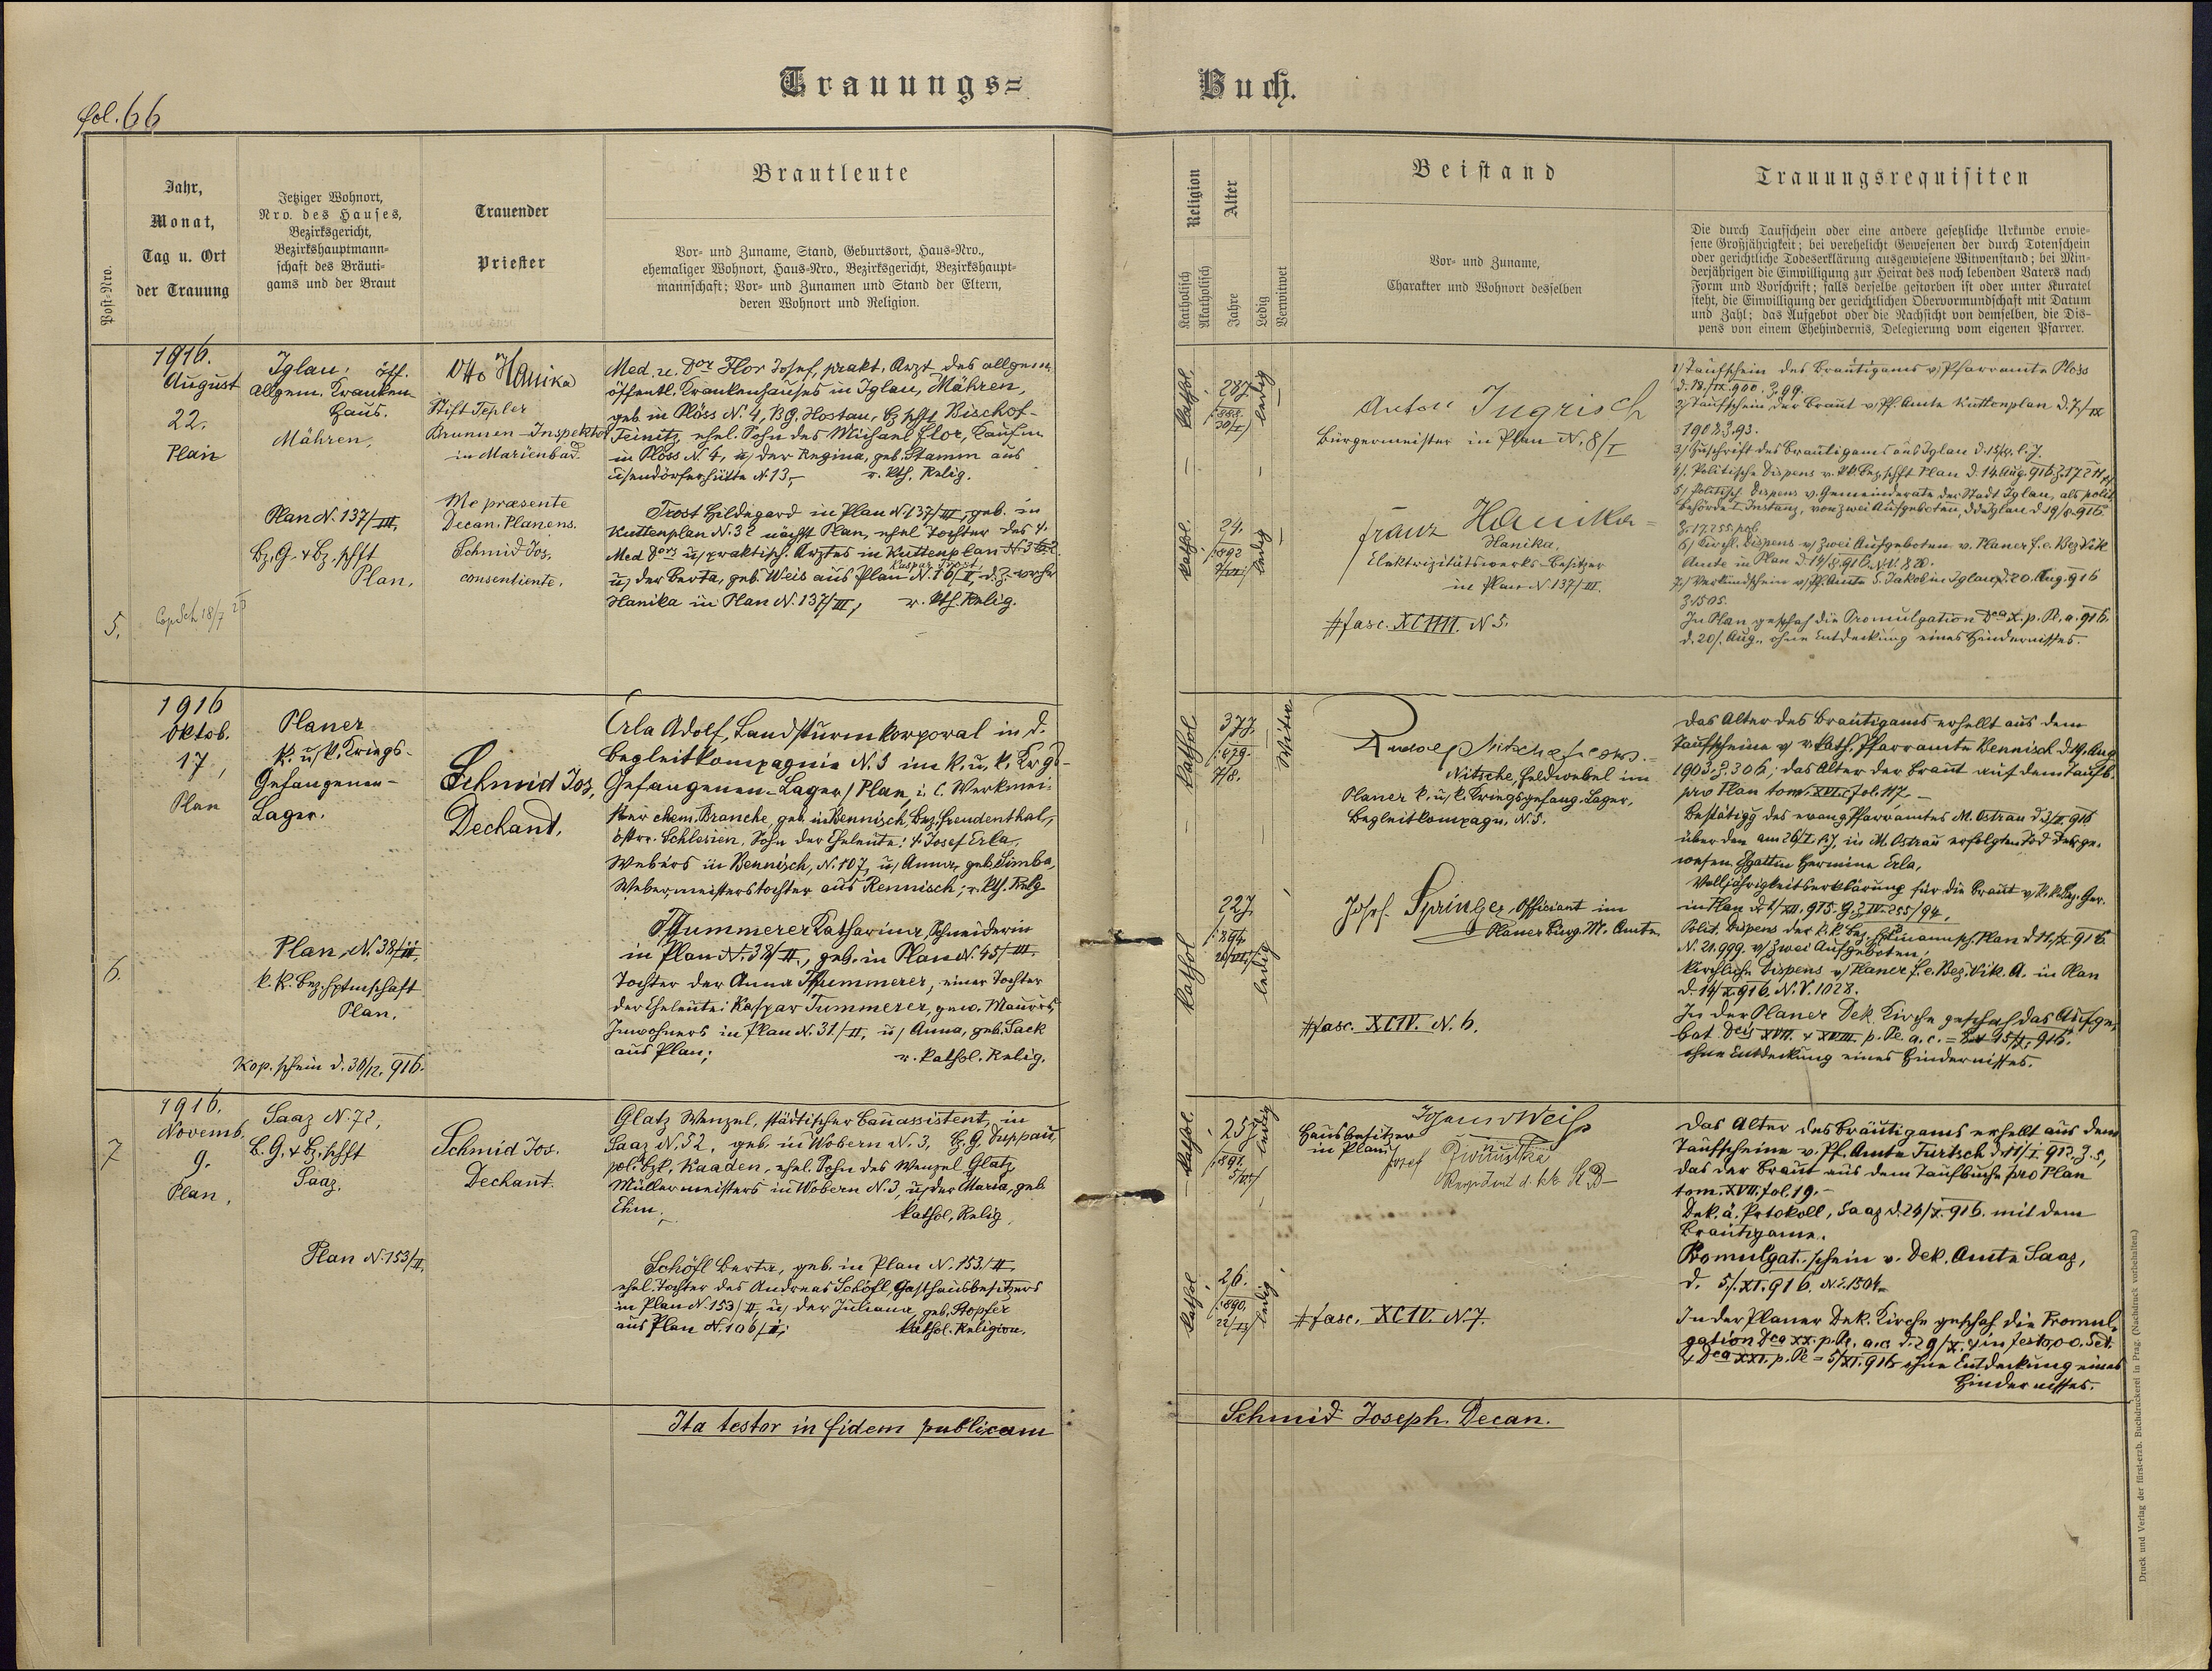 Trauungs=
Buch.
fol. 66
Post-Nro.
Jahr,
Monat,
Tag u. Ort
der Trauung
Jetziger Wohnort,
Nro. des Hauses,
Bezirksgericht,
Bezirkshauptmann-
schaft des Bräuti-
gams und der Braut
Trauender
Priester
Brautleute
Vor- und Zuname, Stand, Geburtsort, Haus-Nro.,
ehemaliger Wohnort, Haus-Nro., Bezirksgericht, Bezirkshaupt-
mannschaft; Vor- und Zunamen und Stand der Eltern,
deren Wohnort und Religion.
Religion
Katholisch
Akatholisch
Alter
Jahre
Ledig
Verwitwet
Beistand
Vor- und Zuname,
Charakter und Wohnort desselben
Trauungsrequisiten
Die durch Taufschein oder eine andere gesetzliche Urkunde erwie-
sene Großjährigkeit; bei verehelicht Gewesenen der durch Totenschein
oder gerichtliche Todeserklärung ausgewiesene Witwenstand; bei Min-
derjährigen die Einwilligung zur Heirat des noch lebenden Vaters nach
Form und Vorschrift; falls derselbe gestorben ist oder unter Kuratel
steht, die Einwilligung der gerichtlichen Obervormundschaft mit Datum
und Zahl; das Aufgebot oder die Nachsicht von demselben, die Dis-
pens von einem Ehehindernis, Delegierung vom eigenen Pfarrer.
5.
1916.
August
22.
Plan
Iglau, öff.
allgem. Kranken-
Haus.
Mähren,
Plan N. 137/III,
Bz. G. & Bz. schft
Plan.
Otto Hanika
Stift-Tepler
Brunnen-Inspektor
in Marienbad.
Me præsente
Decan. Planens.
Schmid Jos,
consentiente.
Med. u. Dor Flor Josef, prakt. Arzt des allgem.
öffentl. Krankenhauses in Iglau, Mähren,
geb. in Plöss N. 4, B.G. Hostau, B. hft Bischof-
Teinitz, ehel. Sohn des Michael Flor, Kaufm.
in Plöss N. 4, u der Regina, geb. Stamm aus
N. 13, r. kth. Relig.
Trost Hildegard in Plan N. 137/III, geb. in
Kuttenplan N. 32 nächst Plan, ehel. Tochter des
Med Dors u praktisch. Arztes in Kuttenplan
Kaspar Trost
u der Berta, geb. Weis aus Plan N. 16/I, d. Z.
Hanika in Plan N. 137/III, r. kth. Relig.
kathol.
28 J
1888.
30/I
ledig
kathol.
24.
1892
ledig
Anton Ingrisch
Bürgermeister in Plan N. 8/I
Franz Hanika
Hanika,
Elektrizitätswerks-Besitzer
in Plan N. 137/III.
# fasc. XCIIII. N 5.
1/ Taufschein des Bräutigams v Pfarramte Plöss
d. 18./IX. 900. Z. 99.
2/ Taufschein der Braut v. Pf. Amte Kuttenplan d. 7/IX
1908 Z. 93.
3/ Zuschrift des Bräutigams aus Iglau
4/. Politische Dispens v. kk Bez. hft Plan d. 14. Aug. 916
5/ Politisch. Dispens v. Gemeinderate der Stadt Iglau, als polit.
Behörde I. Instanz, von zwei Aufgeboten, dd Iglau d 19/8. 916
Z. 17.255. pol.
6/ Kirchl. Dispens v zwei Aufgeboten v. Planer f. e. Bez Vik
Amte in Plan d. 14/8. 916
7/ Verkündschein v Pf. Amte S. Jakob in Iglau d. 20. Aug. 916
Z. 1505.
In Plan geschah die Promulgation Dca X. p. Pe. a. 916.
d. 20/. Aug., ohne Entdeckung eines Hindernisses.
6.
1916
Oktob.
17,
Plan
Planer
k. u k. Kriegs-
Gefangenen-
Lager.
Plan, N. 38/II,
k. k. Bez. Hptmschaft
Plan.
Kop. schein d. 30/12. 916.
Schmid Jos,
Dechant.
Erla Adolf, Landsturmkorporal in d.
Begleitkompagnie N. 5 im k. u. k. Krgs-
Gefangenen-Lager / Plan, i. C. Werkmei-
ster chem. Branche, geb. in Bennisch, Bez. Freudenthal,
östrr. Schlesien, Sohn der Eheleute: † Josef Erla,
Webers in Bennisch, N. 107, u Anna, geb. Simba,
Webermeisterstochter aus Bennisch; r. kth. Relg.
Thummerer Katharina, Schneiderin
in Plan N. 38/II, geb. in Plan N. 45/III.
Tochter der Anna Thummerer, einer Tochter
der Eheleute: Kaspar Tummerer, gew. Maurers,
Inwohners in Plan N. 31/II, u Anna, geb. Sack
aus Plan; r. kathol. Relig.
kathol.
37 J.
1879.
7/8.
Witwer
kathol
22 J.
1894.
ledig
Rudolf Nitsche
Nitsche, Feldwebel im
Planer k. u k. Kriegsgefang. Lager,
Begleitkompagn. N. 5.
Josef Springer, Offiziant im
Planer Bürg. M. Amte.
# fasc. XCIV. N. 6.
Das Alter des Bräutigams erhellt aus dem
Taufscheine v r. kath. Pfarramte Bennisch d. 14. Aug
1903. Z. 306; das Alter der Braut aus dem Taufb.
pro Plan tom. XVI. fol. 117.
Bestätigg des evang Pfarramtes M. Ostrau
über den am in M. Ostrau erfolgten Tod der ge-
wesen. Gattin Hermine Erla.
Volljährigkeitserklärung für die Braut v k. k. Bez. Ger.
in Plan d. 1/XII. 915.
Polit. Dispens der k. k. Bez. Hptmannsch. Plan d 11/X. 916
N. 21.999. v zwei Aufgeboten;
kirchliche Dispens v Planer f. e. Bez. Vik. A. in Plan
d. 14/X. 916. N. V. 1028.
In der Planer Dek. Kirche geschah das Aufge-
bot Dcis XVII. & XVIII. p. Pe. a. c. = 15/X. 916.
ohne Entdeckung eines Hindernisses.
7
1916.
Novemb.
9.
Plan.
Saaz N. 72,
B. G. & Bz. schft
Saaz.
Plan N. 153/II.
Schmid Jos.
Dechant.
Glatz Wenzel, städtischer Bauassistent, in
Saaz N. 52, geb. in Wobern N. 3, Bz. G. Duppau,
pol. Bzk. Kaaden, ehel. Sohn des Wenzel Glatz
Müllermeisters in Wobern N. 3, u der Maria, geb.
Ehm. kathol. Relig.
Schöfl Berta, geb. in Plan N. 153/II
ehel. Tochter des Andreas Schöfl, Gasthausbesitzers
in Plan N. 153/II, u der Juliana, geb. Stopfer
aus Plan N. 106/I; kathol. Religion.
kathol.
25 J
1891.
ledig
kathol
26.
1890.
ledig
Weiss
Hausbesitzer
in Plan
Josef
# fasc. XCIV. N. 7.
Das Alter des Bräutigams erhellt aus dem
Taufscheine v. Pf. Amte Turtsch d. 11/I. 912. Z. 5,
das der Braut aus dem Taufbuche pro Plan
tom. XVII. fol. 19.
Dek. ä. Protokoll, Saaz d. 24/X. 916. mit dem
Bräutigame.
Promulgat. schein v. Dek. Amte Saaz,
d. 5/. XI. 916. N. 1504.
In der Planer Dek. Kirche geschah die Promul-
gation Dca XX. p. Pe. a. c. d. 29/X. in festo O. O. Sct.
& Dca XXI. p. Pe = 5/XI. 916 ohne Entdeckung eines
Hindernisses.
Ita testor in fidem publicam
Schmid Joseph. Decan.
Druck und Verlag der fürst-erzb. Buchdruckerei in Prag. (Nachdruck vorbehalten.)